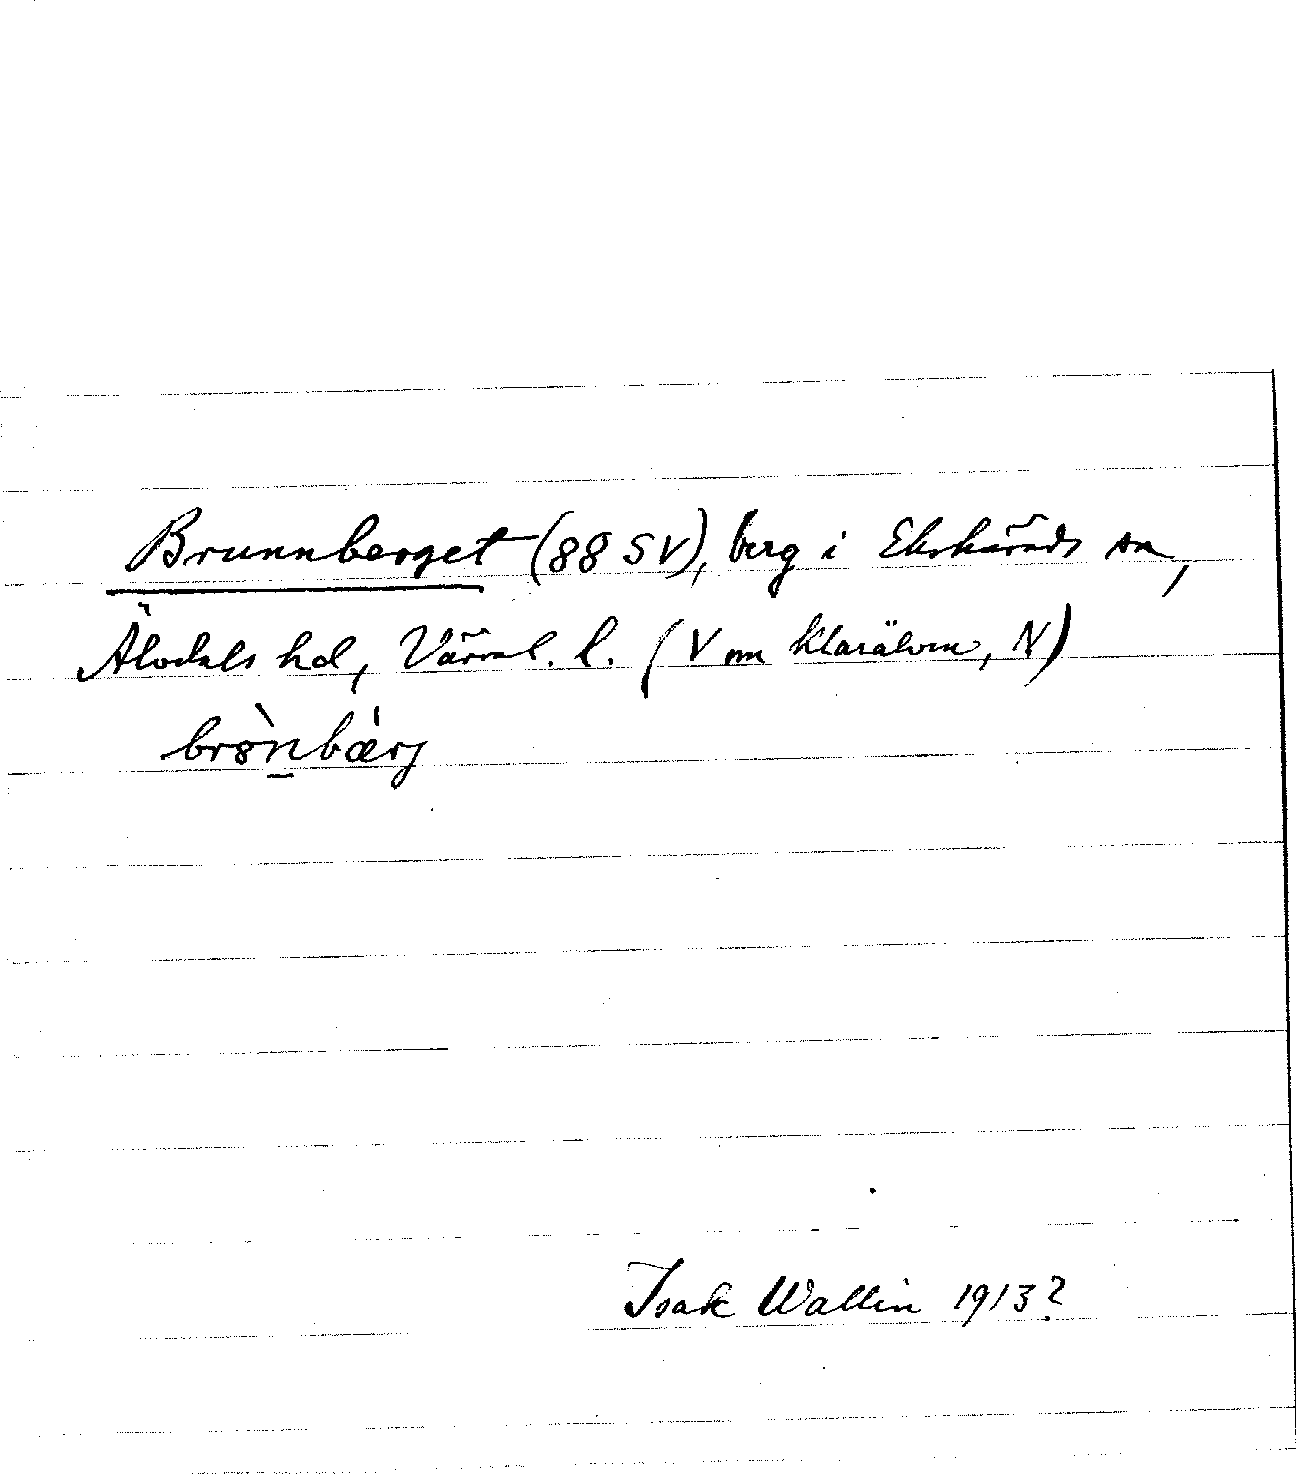 Brunnberget (88 SV), berg i Ekshärads sn,
Älvdals hd, Värml. l. (V om Klarälven, N)
brɵ̀n̠bæ̀rj
Isak Wallin 1913?